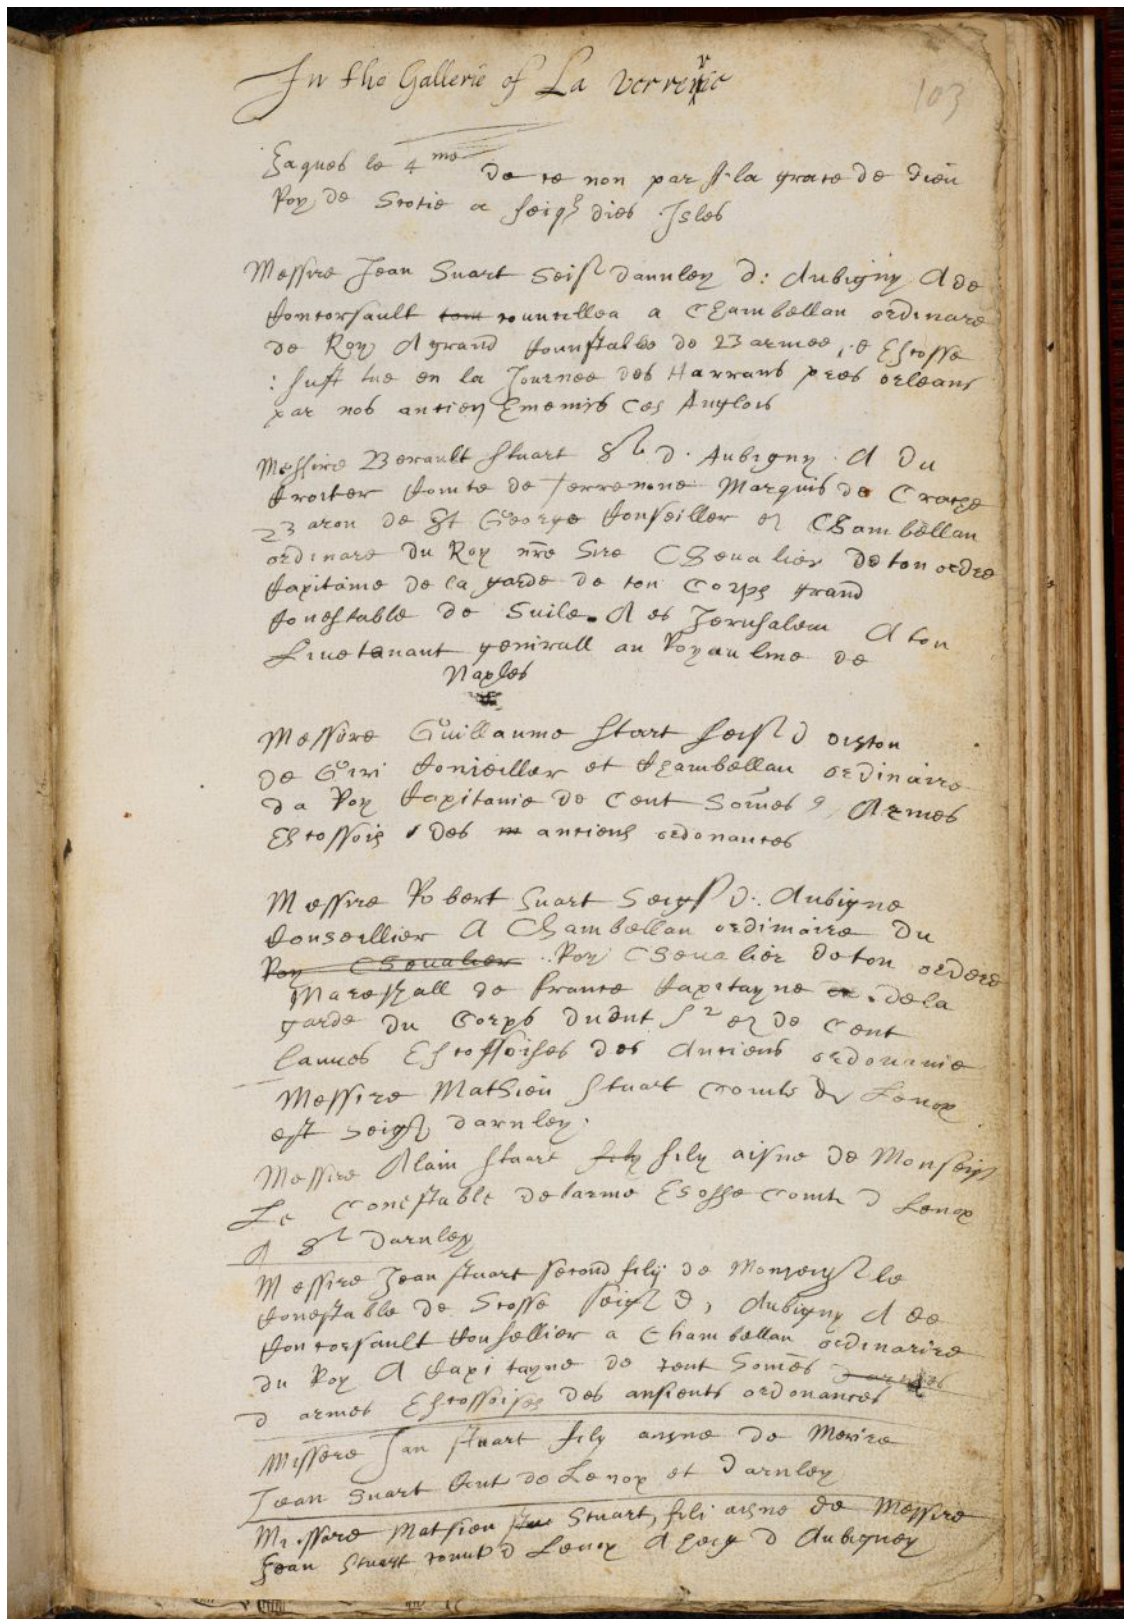 In the Gallerie of La Verrerie
103
Jaques le 4me de ce non par la grace de dieu
Roy de Scotie a seigr dies Isles
Messire Jean Suart Seigr dannley d: Aubigny & de
Concorsault councillea a Chambellan ordinare
de Roy & grand Connstable de armee Escosse
: fust tue en la Journee des Harrans pres orleans
par nos antien Ennemis ces Anglois
Messire Berault Stuart Sr d. Aubigny. & du
Croiter Comte de Terrenone Marquis de Crathe
Baron de St George Conseiller et Chambellan
ordinare du Roy nre Sire Chevalier de son ordre
Capitaine de la garde de son Corps grand
Conestable de Scile. & es Jerusalem & son
Lieutenant generall au Royaulme de
Naples
Messire Guillaume Start seigr d oiston
de Conseiller et Chambellan ordinaire
da Roy Capitanie de Cent Homes d Armes
Escossois des antiens ordonances
Messire Robert Suart Seigr d: Aubigne
Conseillier & Chambellan ordimaire du
Roy Chevalier .. Roy Chevalier de son ordere
Mareschall de france Capitayne de la
garde du Corps dudit Sr et de Cent
lances Escossoises des Antiens ordonanie
Messire Mathieu Stuart Comte de Lenox
est Seigr darnley.
Messire Alain Stuart fily aisne de Monseigr
Le Conestable delarme Escosse Comte d Lenox
& Sr Darnley
Messire Jean Stuart second fily de Monseigr le
Conestable de Scosse seigr d, Aubigny & de
Concorsault Consellier a Chambellan ordinarire
du Roy & Capitayne de cent Homes darmes
d armes Escossoises des ansients ordonances
Missere Jan Stuart fily ansne de Mesire
Jean Suart Cont de Lenox et Darnley
Missere Mathieu Stuart, fili aisne de Messire
Jean Stuart comte d Lenox & seig d Aubigney